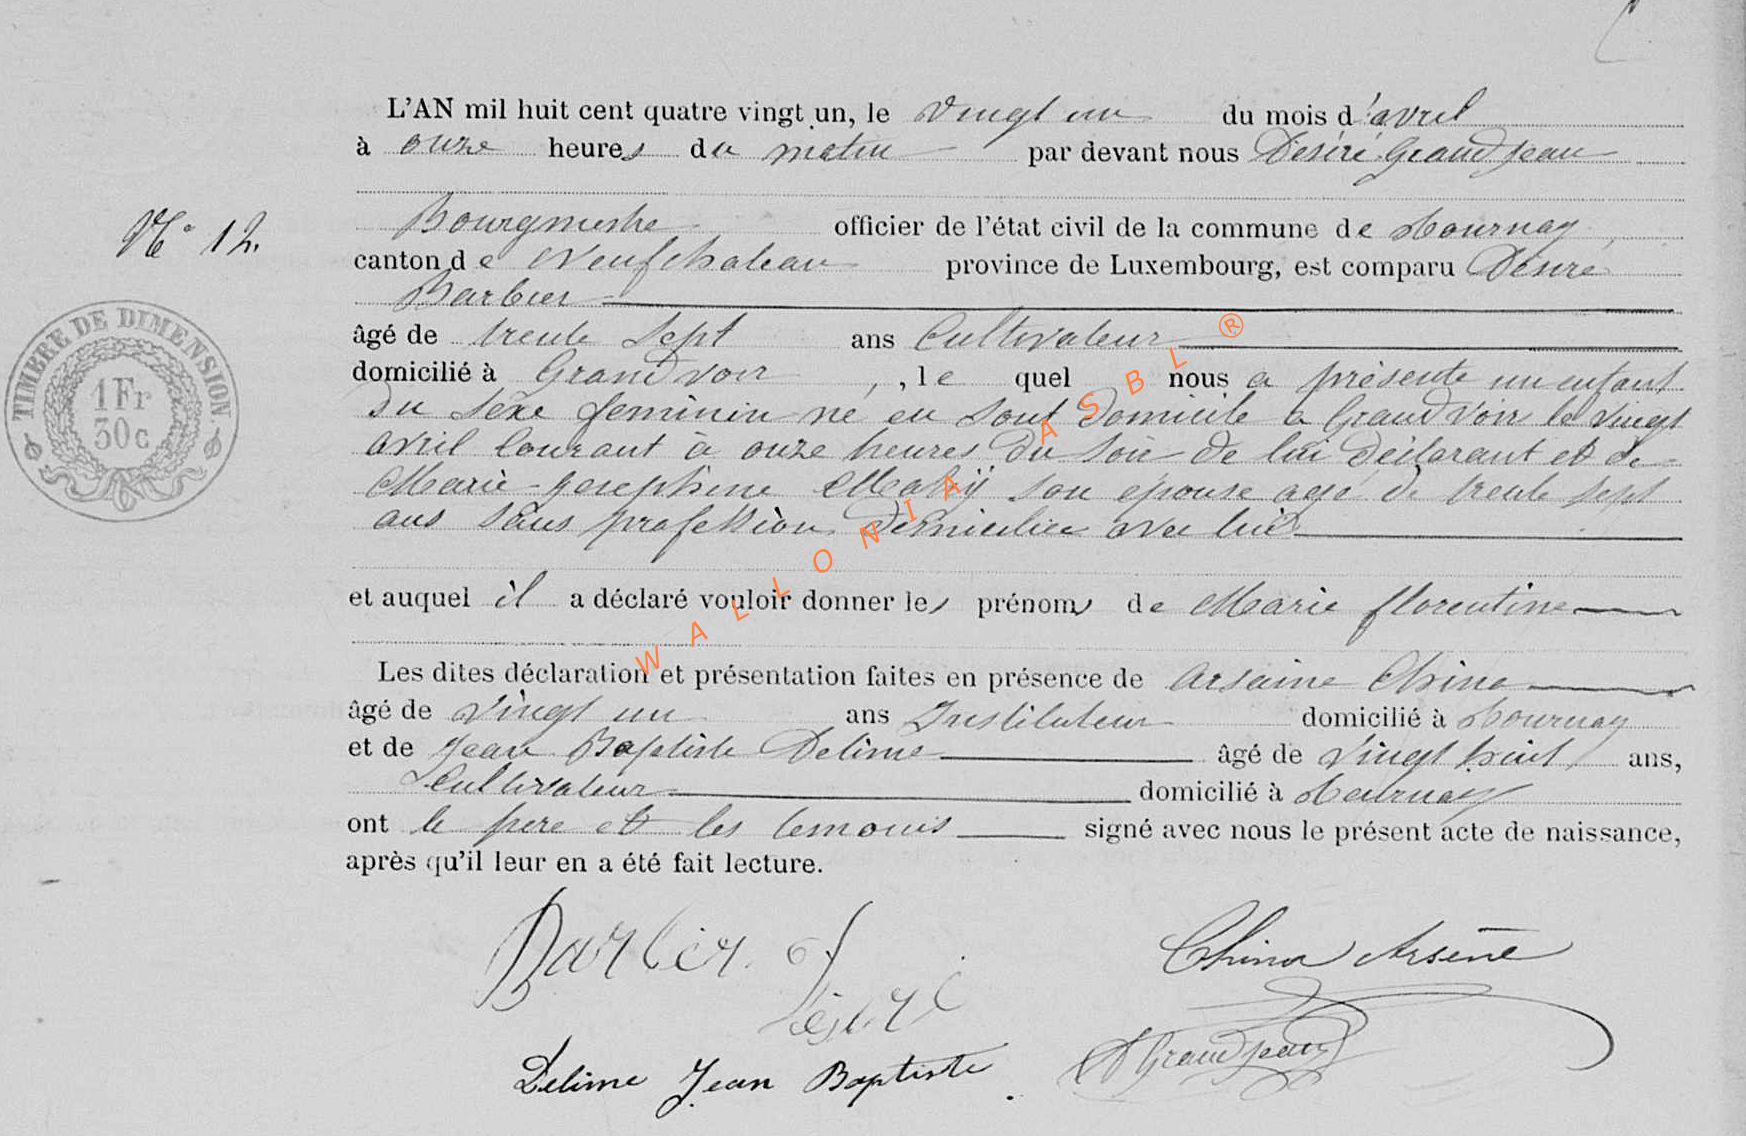 L'AN mil huit cent quatre vingt un, le vingt un du mois d'avril
à onze heures du matin par devant nous Désiré Grandjean
N° 12.
Bourgmestre officier de l'état civil de la commune de Tournay,
canton de Neufchateau province de Luxembourg, est comparu Désiré
Barbier
TIMBRE DE DIMENSION
1 Fr
30 c
âgé de trente sept ans Cultivateur
domicilié à Grandvoir, le quel nous a présenté un enfant
du sexe feminin né en sont domicile a Grandvoir le vingt
avril courant à onze heures du soir de lui déclarant et de
Marie-Josephine son épouse agé de trente sept
ans sans profession domiciliée avec lui
et auquel il a déclaré vouloir donner les prénoms de Marie florentine
Les dites déclaration et présentation faites en présence de Arsaine China
âgé de vingt un ans Instituteur domicilié à Tournay
et de Jean Baptiste Delime âgé de vingt huit ans,
Cultivateur domicilié à Tournay
ont le père et les temouis signé avec nous le présent acte de naissance,
après qu'il leur en a été fait lecture.
Barbier
Désiré
China Arsène
Delime Jean Baptiste
DGrandjean
WALLONIA ASBL ®